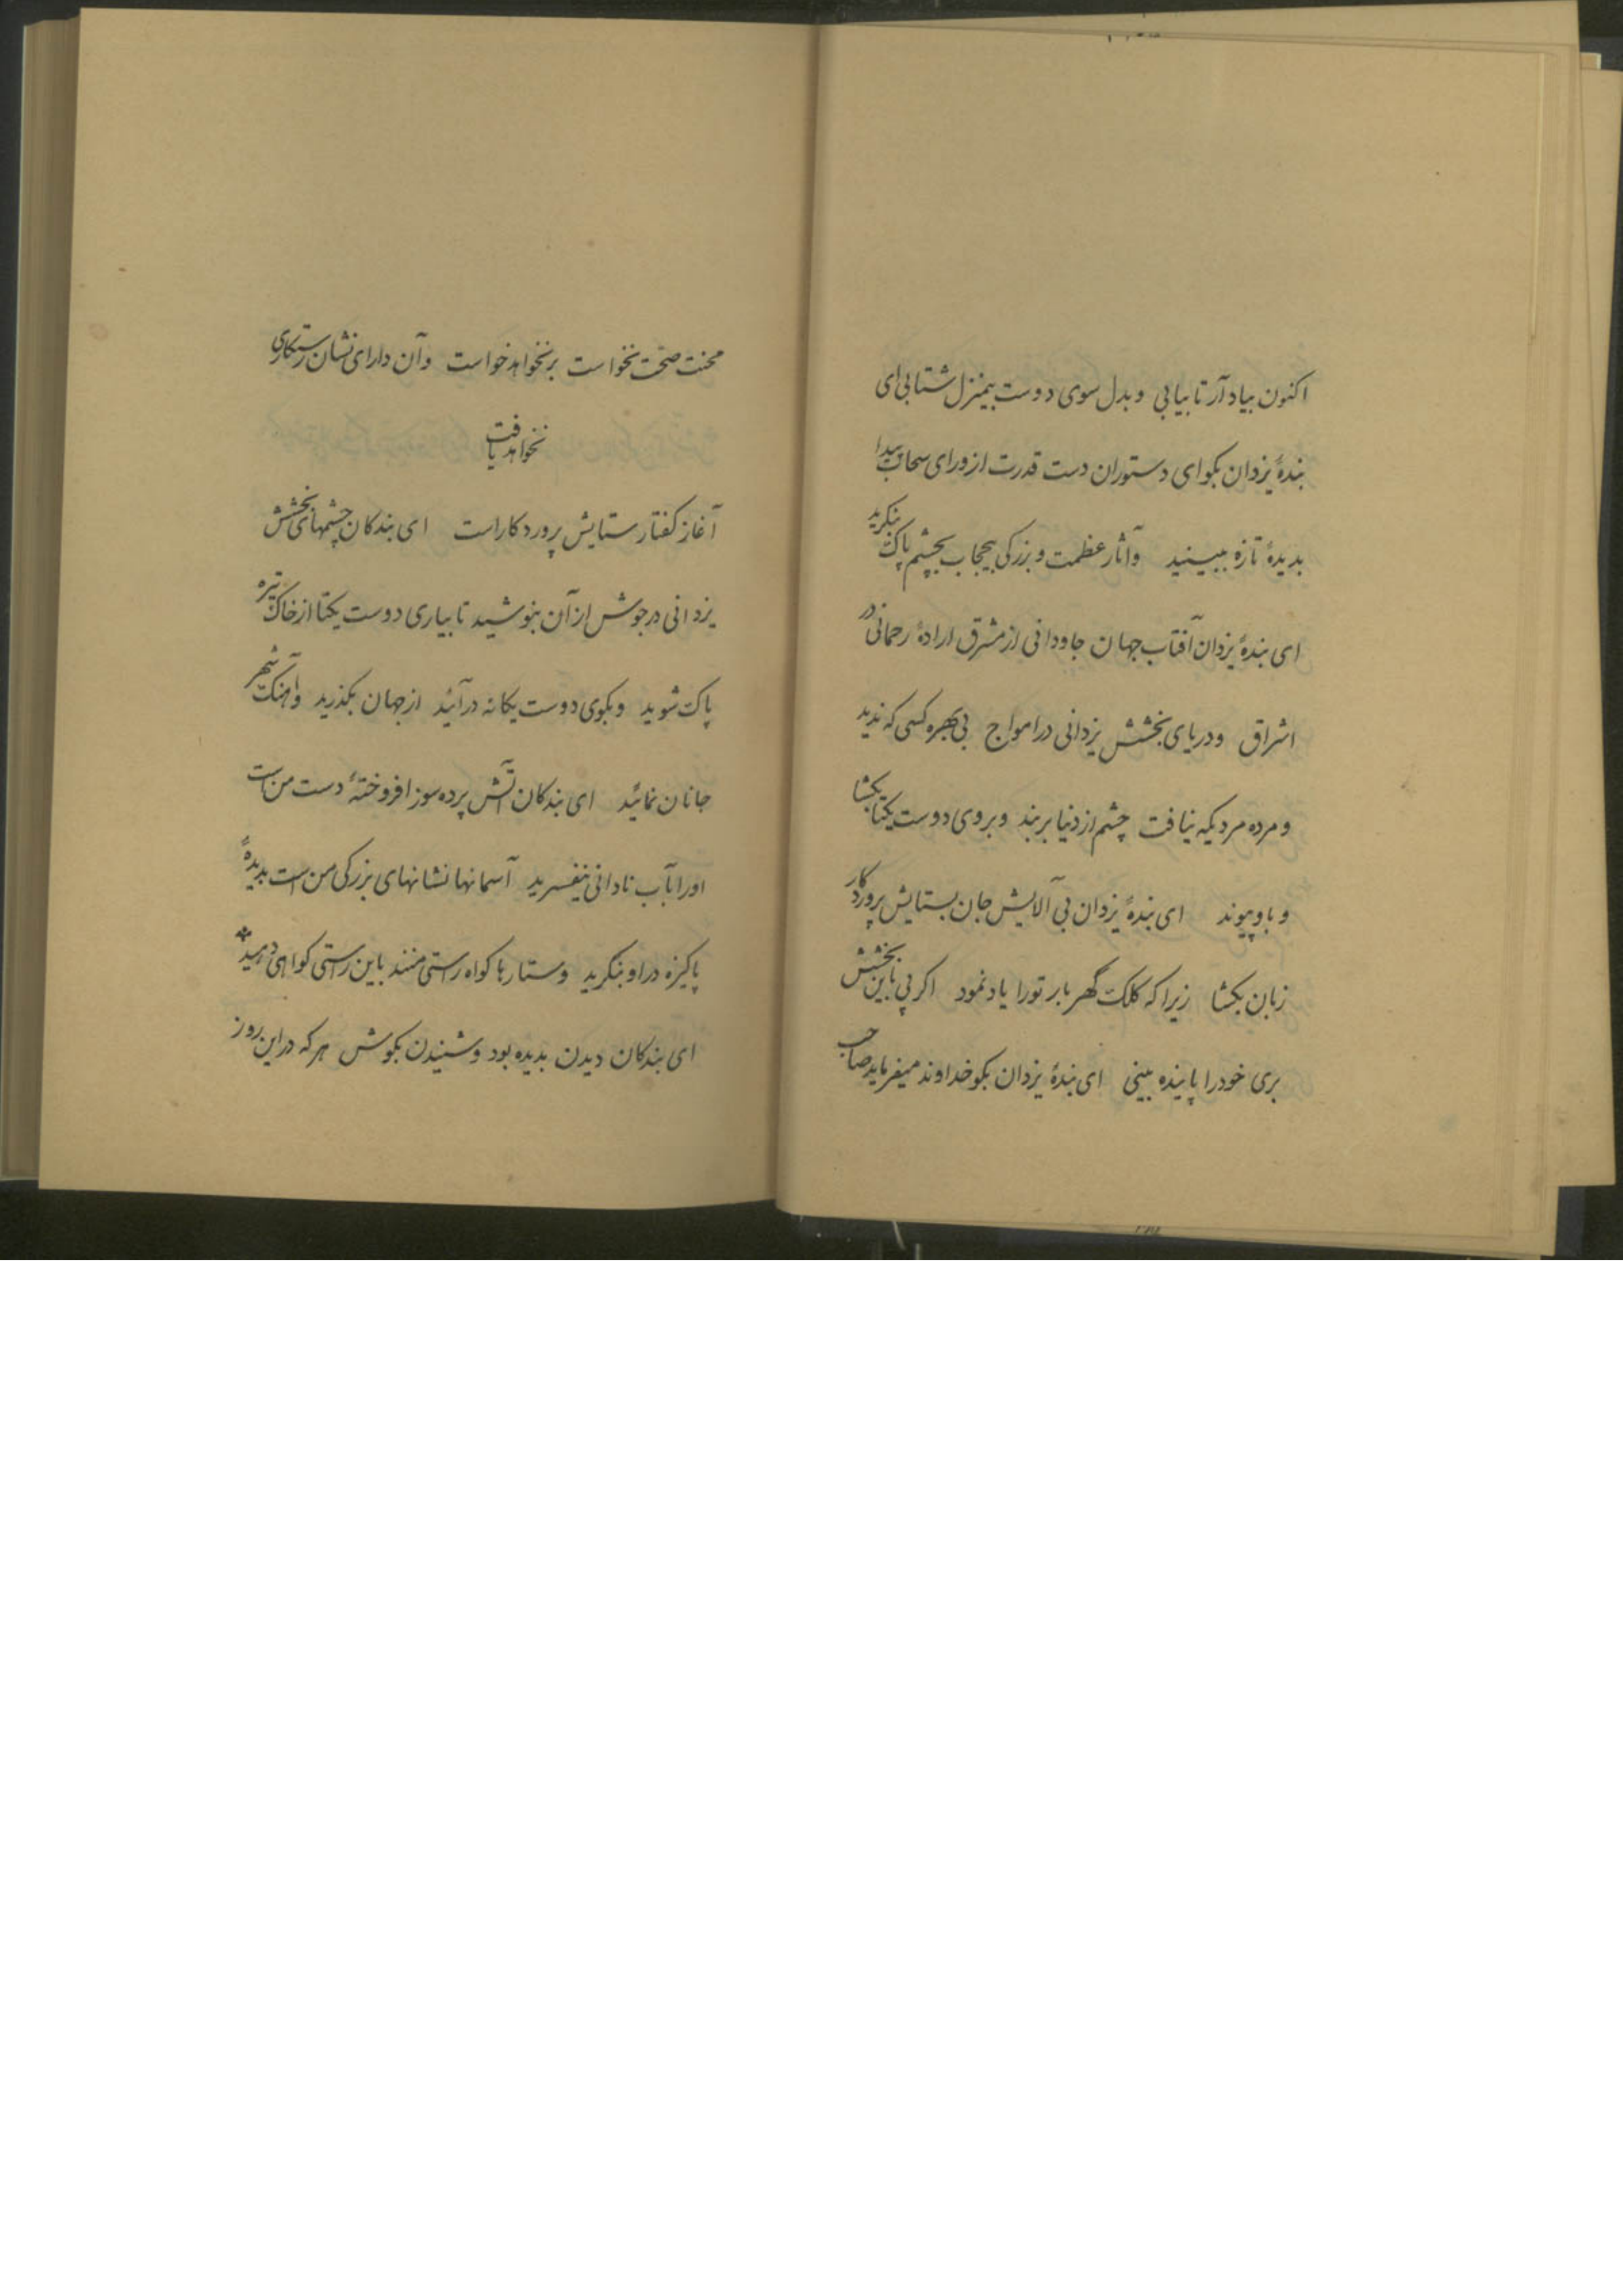 اکنون بیاد آر تا بیابی و بدل سوی دوست بیمنزل شتابی ای
بندهٔ یزدان بکو ای دستوران دست قدرت از ورای سحاب پیدا
بدیدهٔ تازه ببینید و آثار عظمت و بزرکی بیحجاب بچشم پاک بنکرید
ای بندهٔ یزدان آفتاب جهان جاودانی از مشرق ارادهٔ رحمانی در
اشراق و دریای بخشش یزدانی در امواج بی بهره کسی که ندید
و مرده مردیکه نیافت چشم از دنیا بربند و بروی دوست یکتا بکشا
و باو پیوند ای بندهٔ یزدان بی آلایش جان بستایش پروردکار
زبان بکشا زیرا که کلک گهر بار تو را یاد نمود اکر پی باین بخشش
بری خود را پاینده بینی ای بندهٔ یزدان بکو خداوند میفرماید صاحب
محنت صحّت نخواست بر نخواهد خواست و آن دارای نشان رستکاری
نخواهد یافت
آغاز کفتار ستایش پروردکار است ای بندکان چشمهای بخشش
یزدانی در جوش از آن بنوشید تا بیاری دوست یکتا از خاک تیره
پاک شوید و بکوی دوست یکانه درآئید از جهان بکذرید و آهنک شهر
جانان نمائید ای بندکان آتش پرده سوز افروختهٔ دست من است
اورا بآب نادانی نیفسرید آسمانها نشانهای بزرکی من است بدیدهٔ
پاکیزه در او بنکرید و ستارها کواه راستی منند باین راستی کواهی دهید
ای بندکان دیدن بدیده بود و شنیدن بکوش هر که در این روز